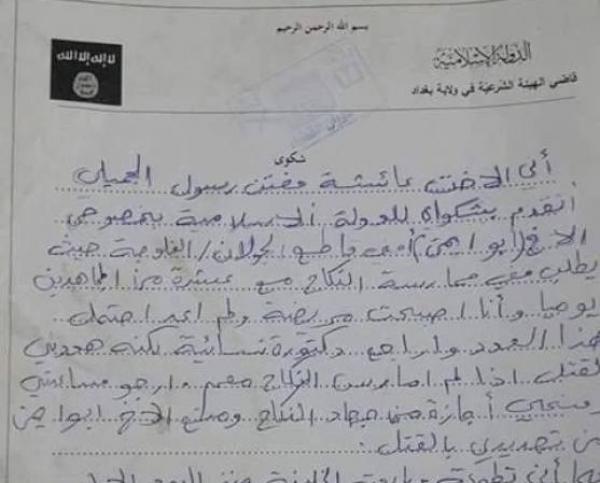 بسم الله الرحمن الرحيم
لا إله إلا الله
الدولة الإسلامية
قاضي الهيئة الشرعية في ولاية بغداد
شكوى
أني الاخت عائشة مفتن رسول الجميلي
أتقدم بشكواي للدولة الاسلامية بخصوص
الاخ (ابو ايمن) أمني قاطع الجولان/الفلوجة حيث
يطلب مني ممارسة النكاح مع عشرة من المجاهدين
يوميا وأنا اصبحت مريضة ولم اعد احتمل
هذا العدد واراجع دكتورة نسائية لكنه هددني
بقتلي اذا لم امارس النكاح معهم . ارجو مساعدتي
ومنحي أجازة من جهاد النكاح ومنع الاخ ابو ايمن
من تهديدي بالقتل